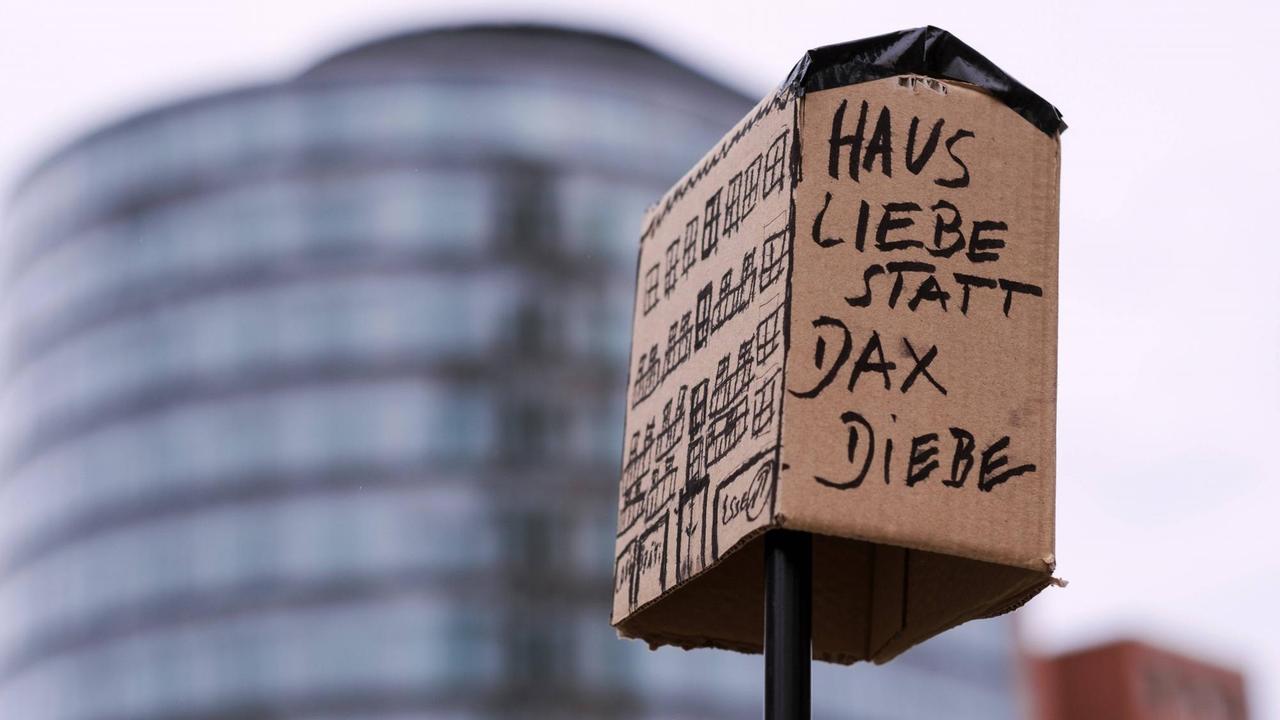 HAUS
LIEBE
STATT
DAX
DiEBE
ESSEN